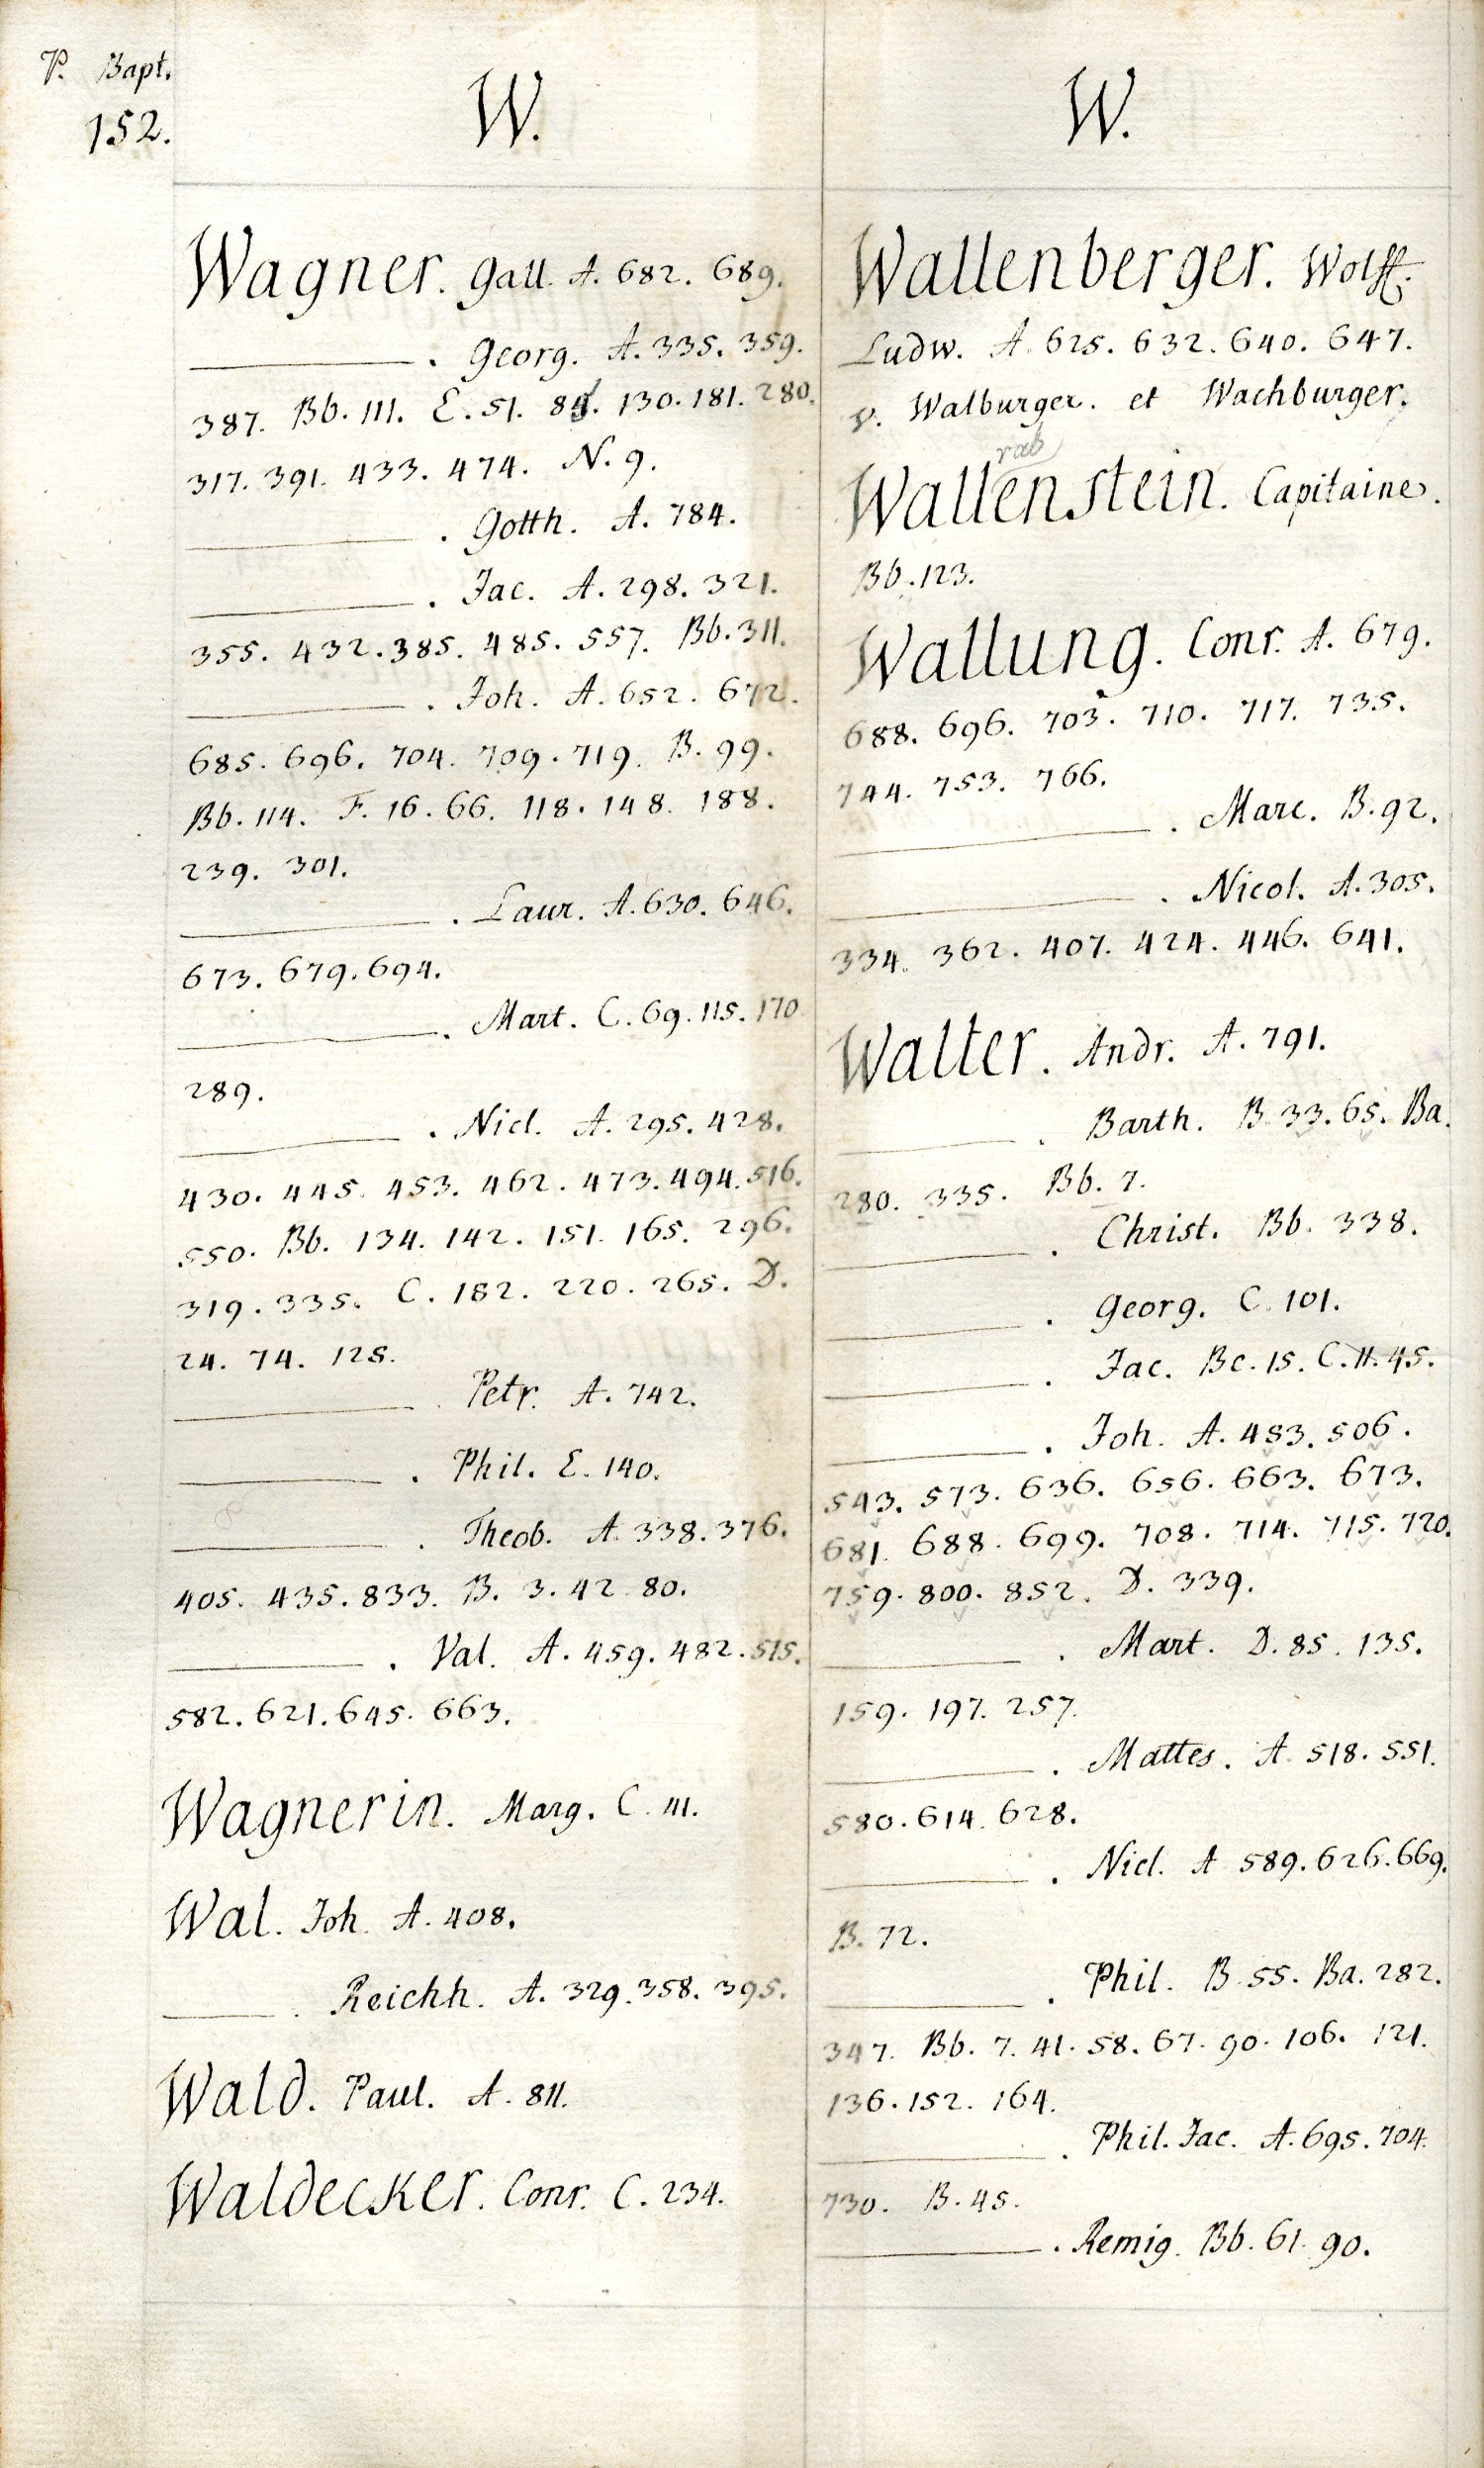 P. Bapt.
152.
W.
Wagner. Gall. A. 682. 689.
. Georg. A. 335. 359.
387. Bb. 111. E. 51. 130. 181. 280.
317. 391. 433. 474. N. 9.
. Gotth. A. 784.
. Jac. A. 298. 321.
355. 432. 385. 485. 557. Bb. 311.
. Joh. A. 652. 672.
685. 696. 704. 709. 719. B. 99.
Bb. 114. F. 16. 66. 118. 148. 188.
239. 301.
. Laur. A. 630. 646.
673. 679. 694.
. Mart. C. 69. 115. 170
289.
. Nicl. A. 295. 428.
430. 445. 453. 462. 473. 494. 516.
550. Bb. 134. 142. 151. 165. 296.
319. 335. C. 182. 220. 265. D.
24. 74. 125.
. Petr. A. 742.
. Phil. E. 140.
. Theob. A. 338. 376.
405. 435. 833. B. 3. 42. 80.
. Val. A. 459. 482. 515.
582. 621. 645. 663.
Wagnerin. Marg. C. 111.
Wal. Joh. A. 408.
. Reichh. A. 329. 358. 395.
Wald. Paul. A. 811.
Waldecker. Conr. C. 234.
W.
Wallenberger. Wolff.
Ludw. A. 625. 632. 640. 647.
v. Walburger. et Wachburger.
rab
Wallenstein. Capitaine.
Bb. 123.
Wallung. Conr. A. 679.
688. 696. 703. 710. 717. 735.
744. 753. 766.
. Marc. B. 92.
. Nicol. A. 305.
334. 362. 407. 424. 446. 641.
Walter. Andr. A. 791.
. Barth. B. 33. 65. Ba.
280. 335. Bb. 7.
. Christ. Bb. 338.
. Georg. C. 101.
. Jac. Bc. 15. C. 11. 45.
. Joh. A. 483. 506.
543. 573. 636. 656. 663. 673.
681. 688. 699. 708. 714. 715. 720.
759. 800. 852. D. 339.
. Mart. D. 85. 135.
159. 197. 257.
. Mattes. A. 518. 551.
580. 614. 628.
. Nicl. A 589. 626. 669.
B. 72.
. Phil. B. 55. Ba. 282.
347. Bb. 7. 41. 58. 67. 90. 106. 121.
136. 152. 164.
. Phil. Jac. A. 695. 704.
730. B. 45.
. Remig. Bb. 61. 90.